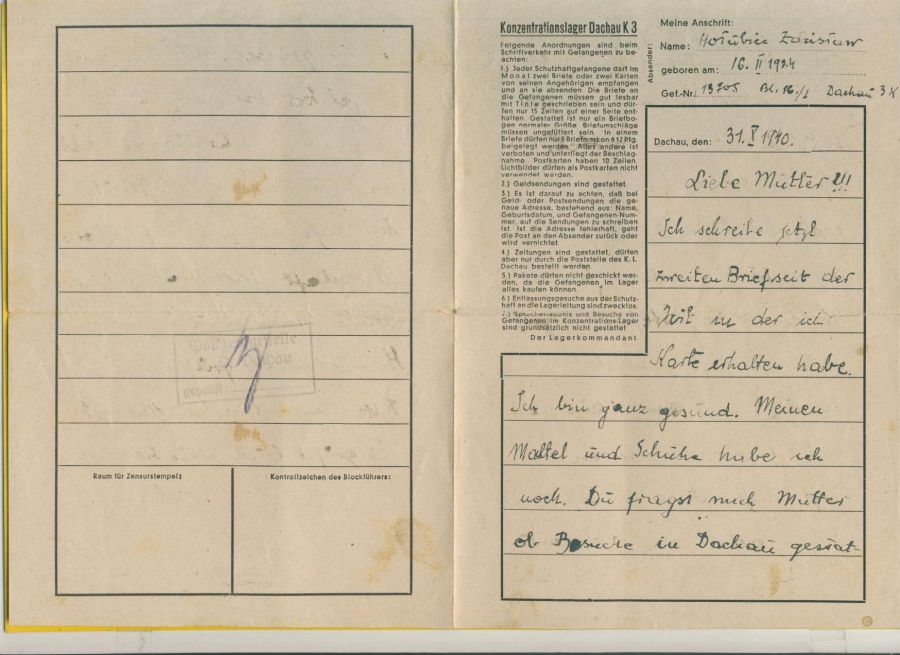 Raum für Zensurstempel:
Kontrollzeichen des Blockführers:
Konzentrationslager Dachau K 3
Folgende Anordnungen sind beim
Schriftverkehr mit Gefangenen zu be-
achten:
1.) Jeder Schutzhaftgefangene darf im
Monat zwei Briefe oder zwei Karten
von seinen Angehörigen empfangen
und an sie absenden. Die Briefe an
die Gefangenen müssen gut lesbar
mit Tinte geschrieben sein und dür-
fen nur 15 Zeilen auf einer Seite ent-
halten. Gestattet ist nur ein Briefbo-
gen normaler Größe. Briefumschläge
müssen ungefüttert sein. In einem
Briefe dürfen nur 5 Briefmarken à 12 Pfg.
beigelegt werden. Alles andere ist
verboten und unterliegt der Beschlag-
nahme. Postkarten haben 10 Zeilen.
Lichtbilder dürfen als Postkarten nicht
verwendet werden.
2.) Geldsendungen sind gestattet.
3.) Es ist darauf zu achten, daß bei
Geld- oder Postsendungen die ge-
naue Adresse, bestehend aus: Name,
Geburtsdatum, und Gefangenen-Num-
mer, auf die Sendungen zu schreiben
ist. Ist die Adresse fehlerhaft, geht
die Post an den Absender zurück oder
wird vernichtet.
4.) Zeitungen sind gestattet, dürfen
aber nur durch die Poststelle des K. L.
Dachau bestellt werden.
5.) Pakete dürfen nicht geschickt wer-
den, da die Gefangenen im Lager
alles kaufen können.
6.) Entlassungsgesuche aus der Schutz-
haft an die Lagerleitung sind zwecklos.
7.) Sprecherlaubnis und Besuche von
Gefangenen im Konzentrations-Lager
sind grundsätzlich nicht gestattet.
Der Lagerkommandant.
Absender:
Meine Anschrift:
Name: Hołubiec
geboren am: 16. II 1924
Gef.-Nr. 13205 Bl. 16/1 Dachau 3 K
Dachau, den: 31. X 1940.
Liebe Mutter !!!
Ich schreibe jetzt
zweiten Briefseit der
Zeit in der ich
Karte erhalten habe.
Ich bin ganz gesund. Meinen
Mantel und Schuhe habe ich
noch. Du fragst mich Mutter
ob Besuche in Dachau gestat-